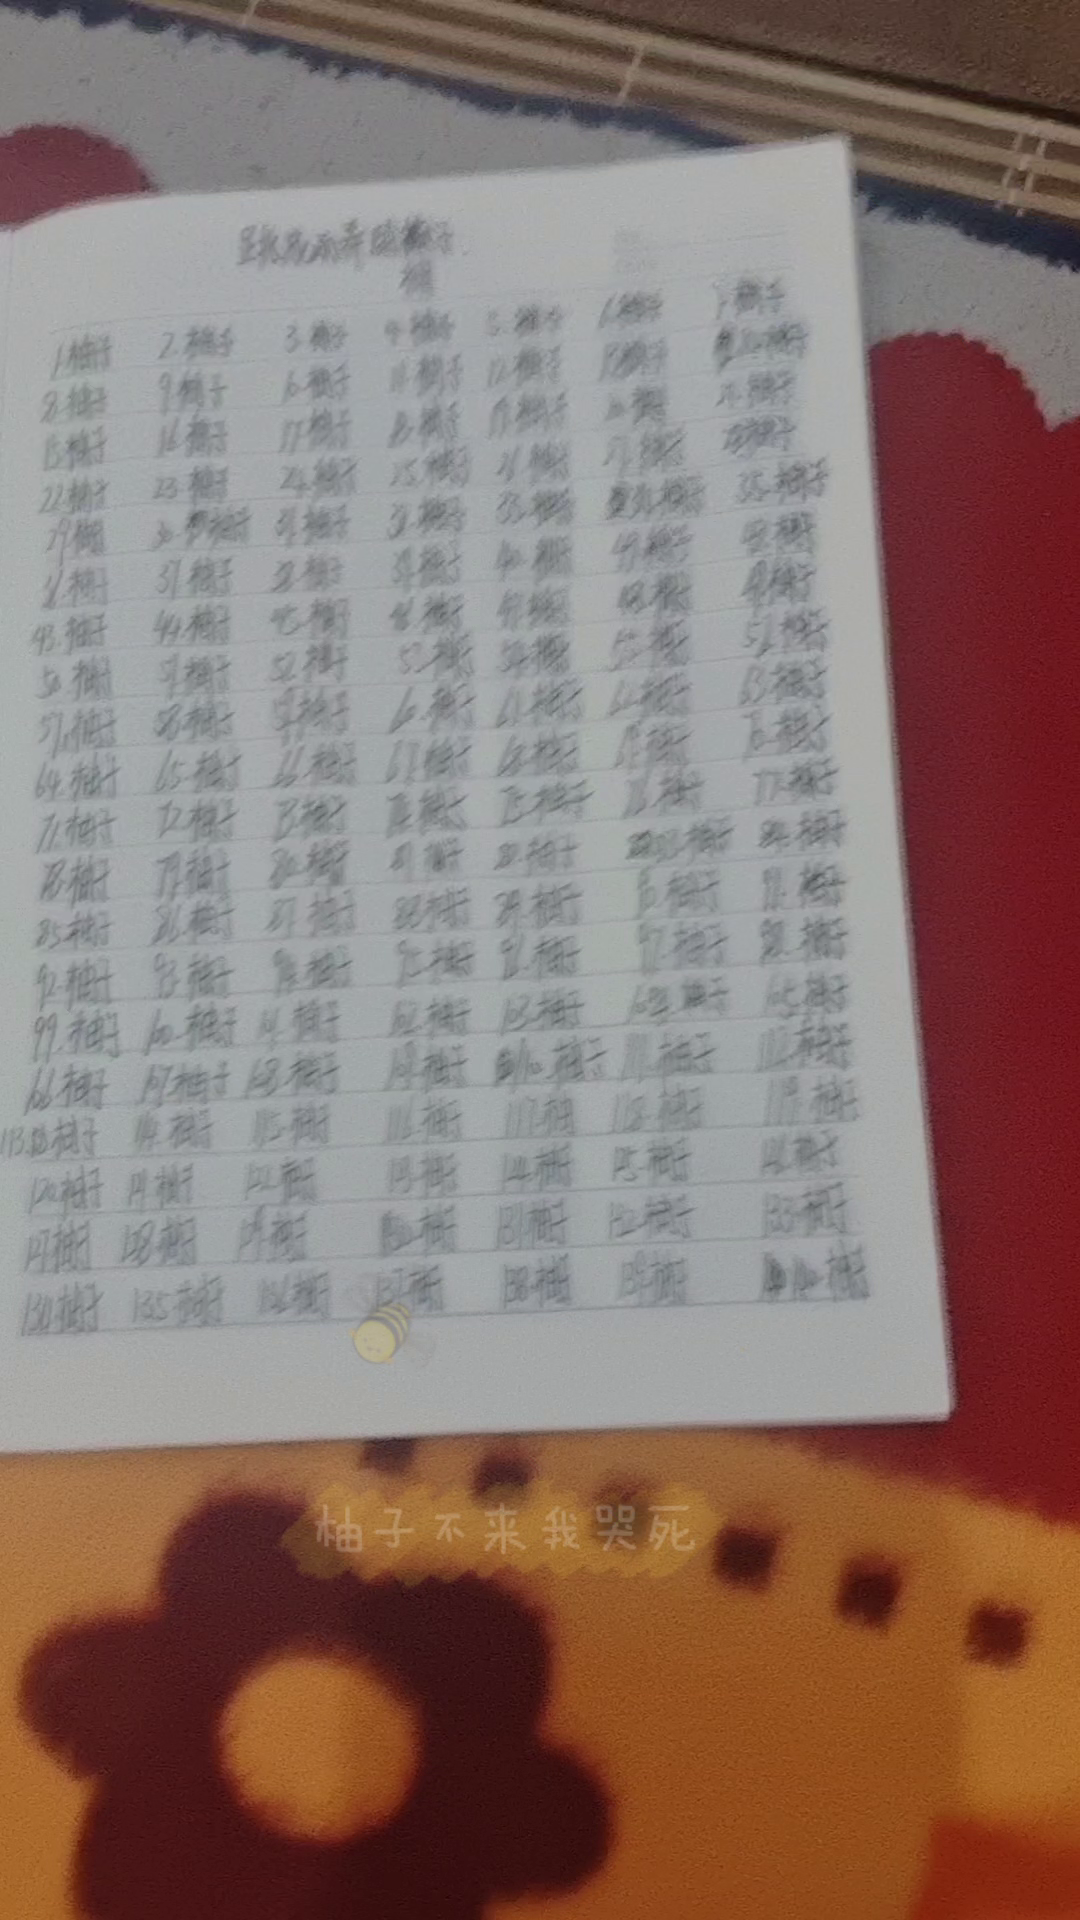 1.柚子 2.柚子 3.柚子 4.柚子 5.柚子 6.柚子 7.柚子
8.柚子 9.柚子 10.柚子 11.柚子 12.柚子 13.柚子 柚子
15.柚子 16.柚子 17.柚子 18.柚子 19.柚子 20.柚子 21.柚子
22.柚子 23.柚子 24.柚子 25.柚子 26.柚子 27.柚子 柚子
29.柚子 30.柚子 31.柚子 32.柚子 33.柚子 34.柚子 35.柚子
36.柚子 37.柚子 38.柚子 39.柚子 40.柚子 柚子 柚子
43.柚子 44.柚子 45.柚子 46.柚子 47.柚子 48.柚子 49.柚子
50.柚子 51.柚子 52.柚子 53.柚子 54.柚子 55.柚子 56.柚子
57.柚子 58.柚子 59.柚子 60.柚子 61.柚子 62.柚子 63.柚子
64.柚子 65.柚子 66.柚子 67.柚子 68.柚子 69.柚子 70.柚子
71.柚子 72.柚子 73.柚子 74.柚子 75.柚子 76.柚子 77.柚子
78.柚子 79.柚子 80.柚子 81.柚子 82.柚子 83.柚子 84.柚子
85.柚子 86.柚子 87.柚子 88.柚子 89.柚子 90.柚子 91.柚子
92.柚子 93.柚子 94.柚子 95.柚子 96.柚子 97.柚子 98.柚子
99.柚子 100.柚子 101.柚子 102.柚子 103.柚子 104.柚子 105.柚子
106.柚子 107.柚子 108.柚子 109.柚子 110.柚子 111.柚子 112.柚子
113.柚子 114.柚子 115.柚子 116.柚子 117.柚子 118.柚子 119.柚子
120.柚子 121.柚子 122.柚子 123.柚子 124.柚子 125.柚子 126.柚子
127.柚子 128.柚子 129.柚子 130.柚子 131.柚子 132.柚子 133.柚子
134.柚子 135.柚子 136.柚子 137.柚子 138.柚子 139.柚子 140.柚子
柚子不来我哭死